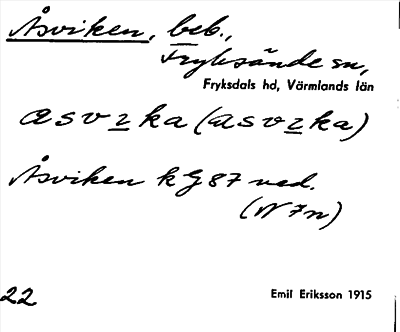 Åsviken, beb.,
Fryksände sn,
Fryksdals hd, Värmlands län
åsvịka (åsvịka)
Åsviken k G87 ned.
(N7n)
22
Emil Eriksson 1915